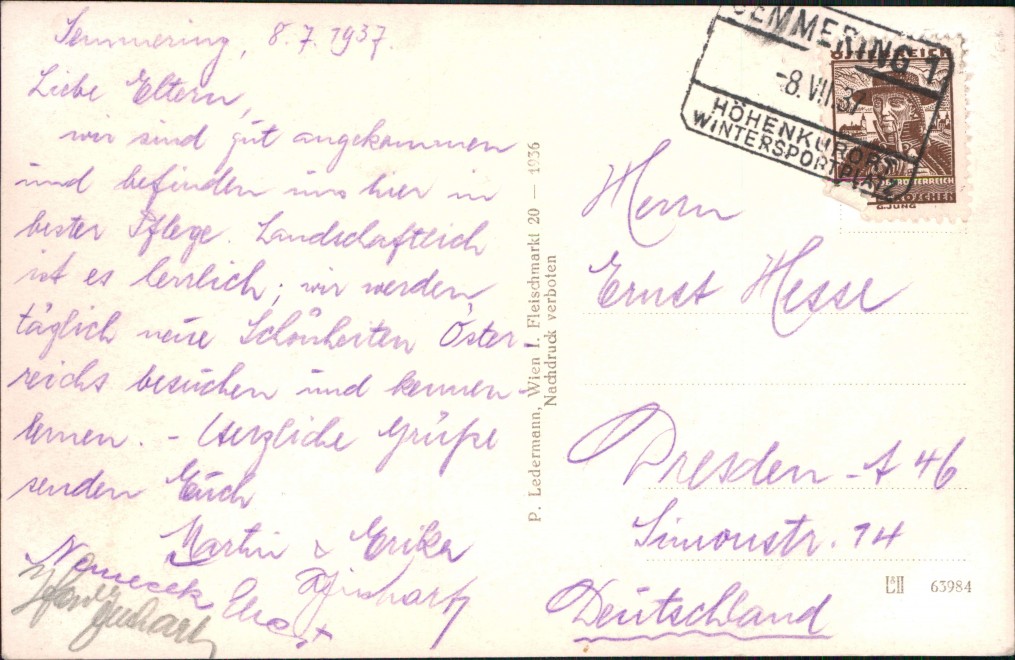 Semmering, 8.7.1937.
Liebe Eltern,
wir sind gut angekommen
und befinden uns hier in
bester Pflege. Landschaftlich
ist es herrlich; wir werden
täglich neue Schönheiten Öster-
reichs besuchen und kennen-
lernen. - Herzliche Grüße
senden Euch
Martin & Erika
Nemecek
P. Ledermann, Wien I. Fleischmarkt 20 — 1936
Nachdruck verboten
SEMMERING 1
-8.VII.37
HÖHENKURORT
WINTERSPORTPLATZ
ÖSTERREICH
OBERÖSTERREICH
GROSCHEN
G. JUNG
Herrn
Ernst Hesse
Dresden - A 46
Simonstr. 14
Deutschland
63984